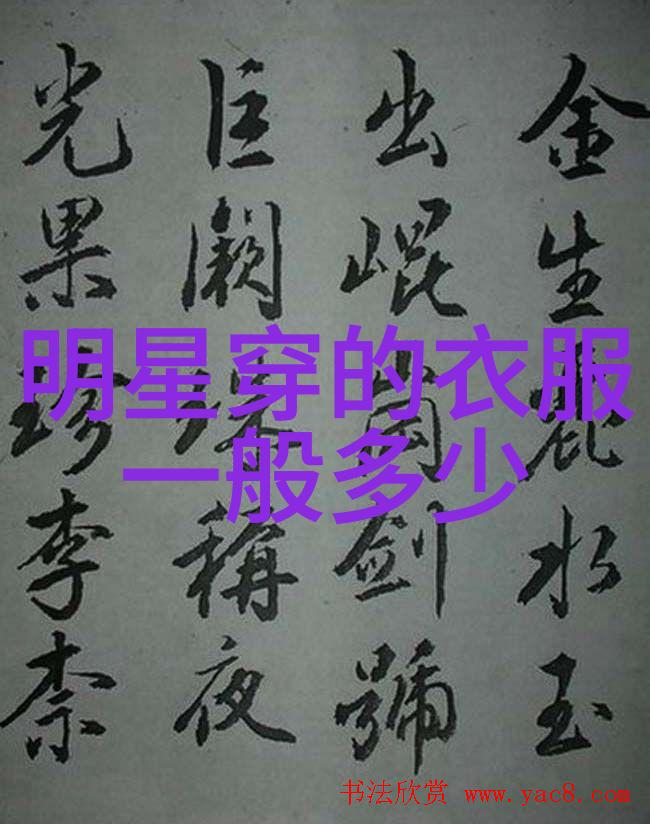 金生麗水玉
出崐崗劍號
巨闕珠稱夜
光果珍李柰
明星穿的衣服
一般多少
书法欣赏 www.yac8.com